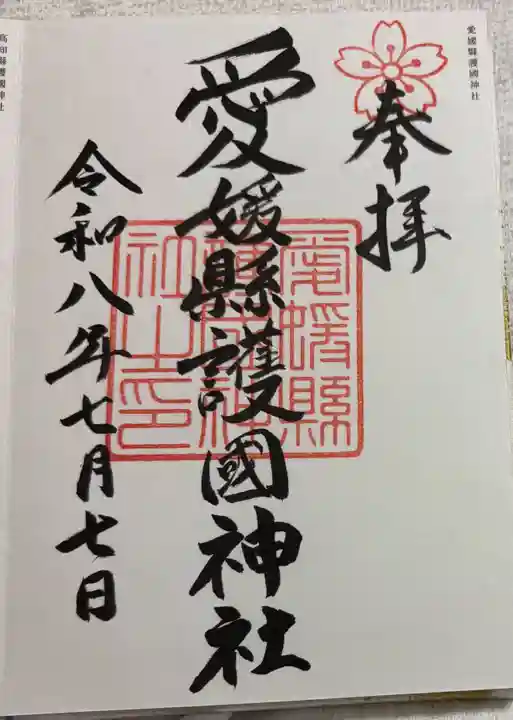 愛媛縣護國神社
奉拝
愛媛縣護國神社
令和八年七月七日
高知縣護國神社